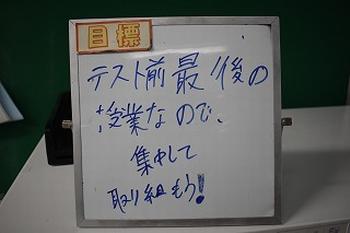 目標
テスト前最後の
授業なので、
集中して
取り組もう!